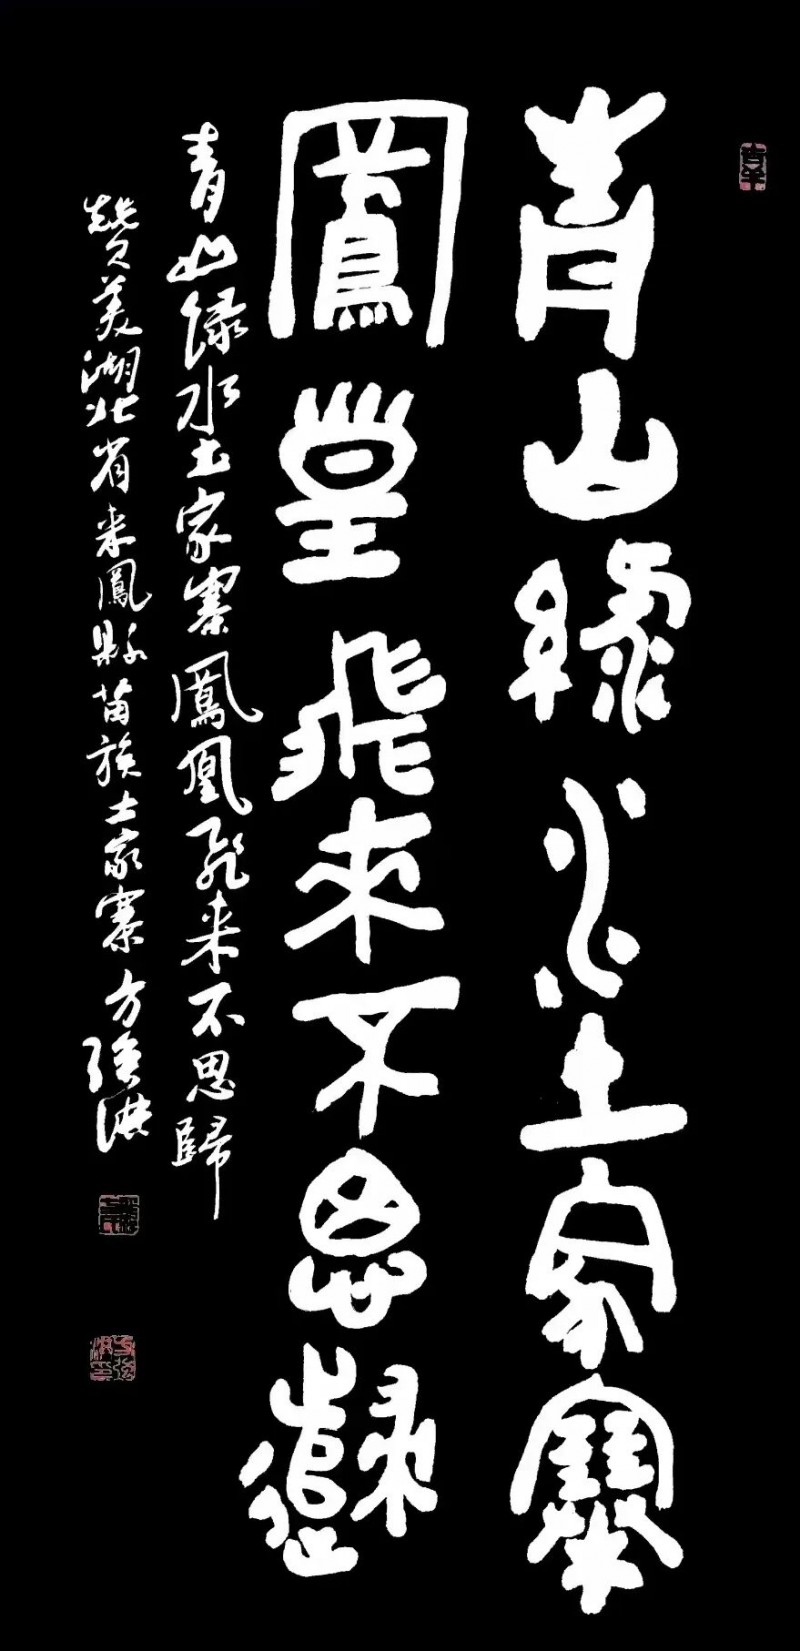 青山綠水土家寨
鳳皇飛來不思歸
青山绿水土家寨鳳凰飛来不思歸
赞美湖北省来鳳縣苗族土家寨方強洪